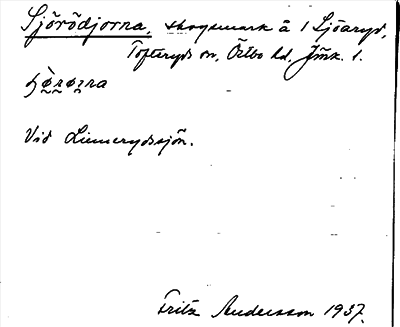 Sjörödjorna, skogsmark å 1 Sjöaryd,
Tofteryds sn, Östbo hd, Jmk. l.
Vid Linnerydssjön.
Fritz Andersson 1937.